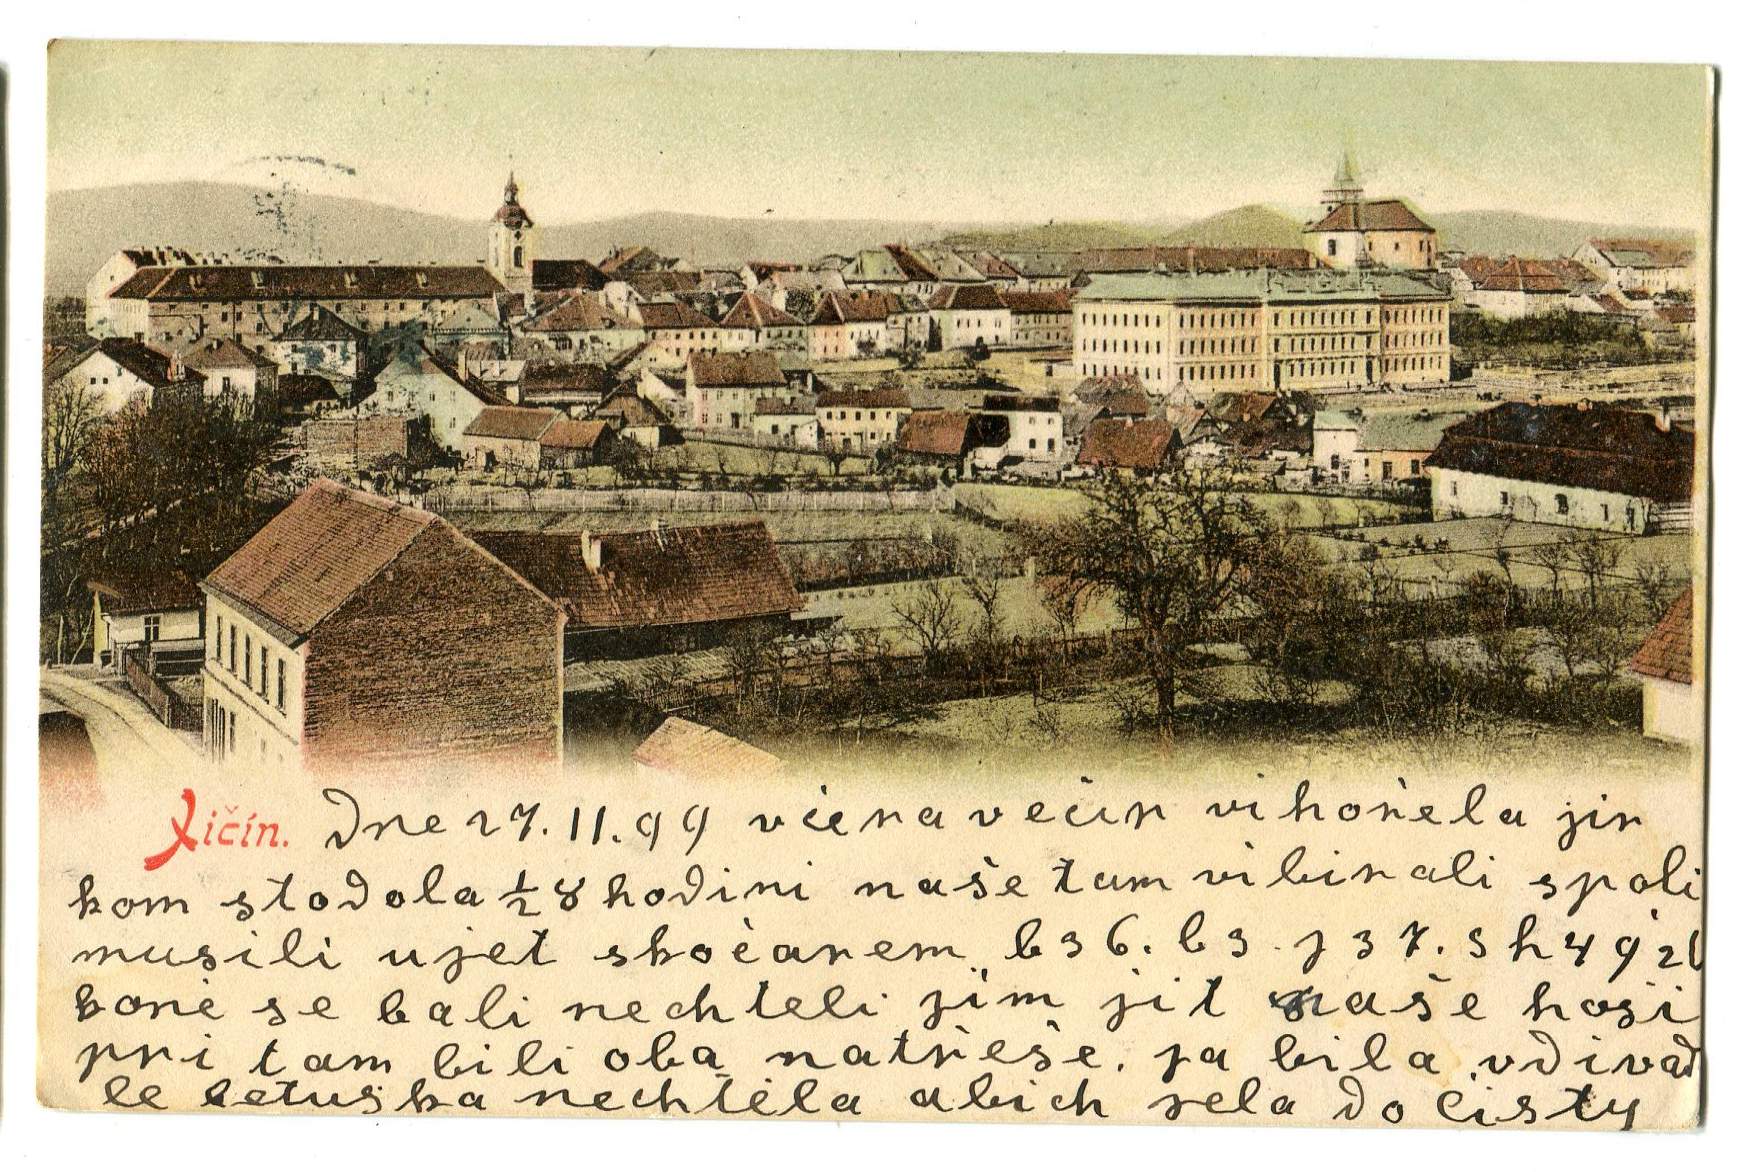 Jičín. Dne 27.11.99 včera večír vihořela jir
kom stodola ½ 8 hodini naše tam vibirali spoli
musili ujet skočárem
koně se bali nechteli jim jit naše hoši
pri tam bili oba na střeše. ja bila vdivad
le tetuška nechtěla abich jela do čisty